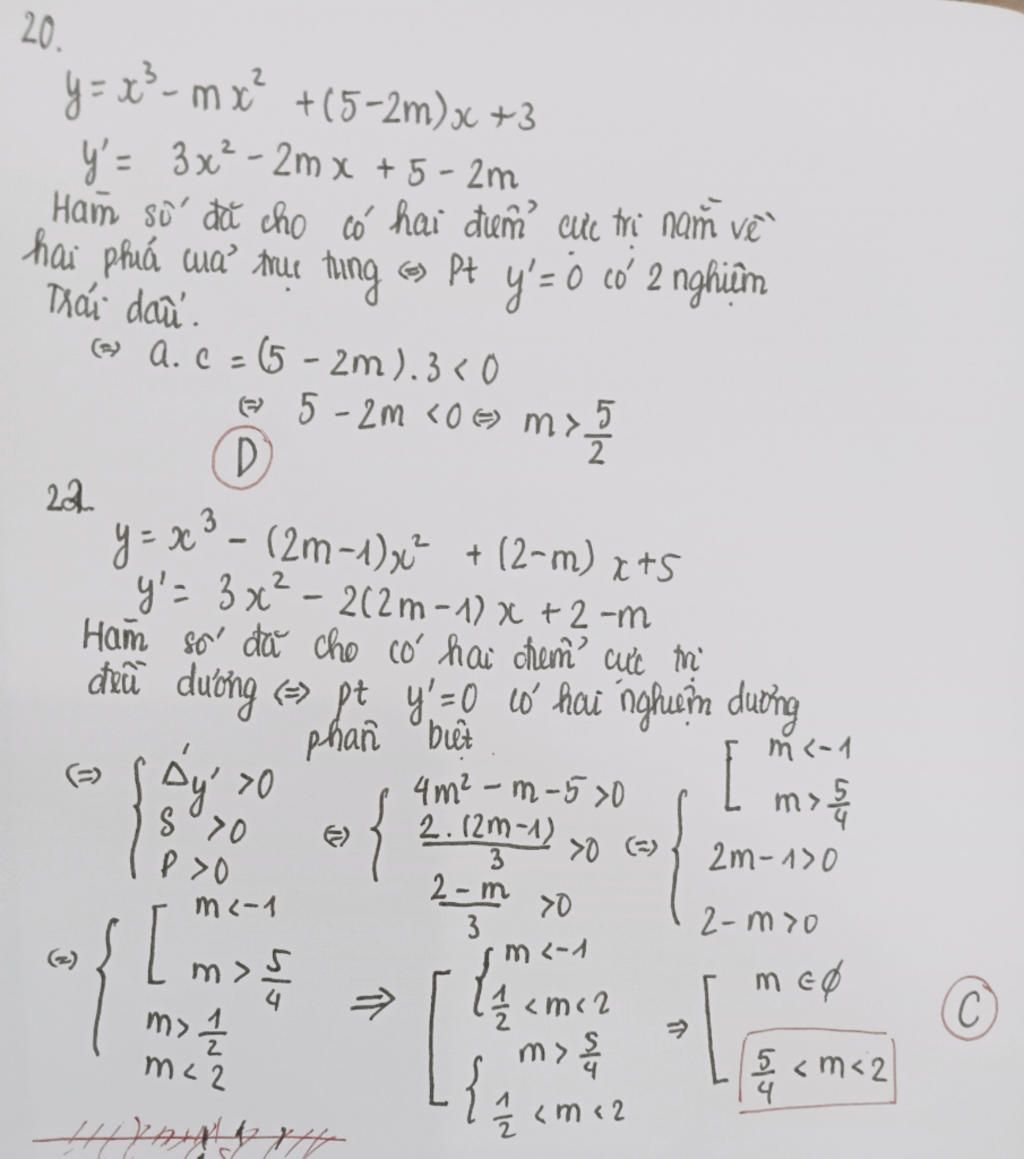 20.
y = x³ - mx² + (5-2m)x + 3
y' = 3x² - 2mx + 5 - 2m
Hàm số đã cho có hai điểm cực trị nằm về
hai phía của trục tung ⇔ Pt y' = 0 có 2 nghiệm
Trái dấu.
⇔ a.c = (5 - 2m).3 < 0
⇔ 5 - 2m < 0 ⇔ m > 5/2
D
22.
y = x³ - (2m-1)x² + (2-m)x + 5
y' = 3x² - 2(2m-1)x + 2 - m
Hàm số đã cho có hai điểm cực trị
đều dương ⇔ pt y' = 0 có hai nghiệm dương
phân biệt
⇔ { Δ'y' > 0 ; S > 0 ; P > 0 ⇔ { 4m² - m - 5 > 0 ; 2.(2m-1)/3 > 0 ; 2-m/3 > 0 ⇔ { [ m < -1 ; m > 5/4 ; 2m-1 > 0 ; 2-m > 0
⇔ { [ m < -1 ; m > 5/4 ; m > 1/2 ; m < 2 ⇒ [ { m < -1 ; 1/2 < m < 2 ; { m > 5/4 ; 1/2 < m < 2 ⇒ [ m ∈ ∅ ; 5/4 < m < 2
C